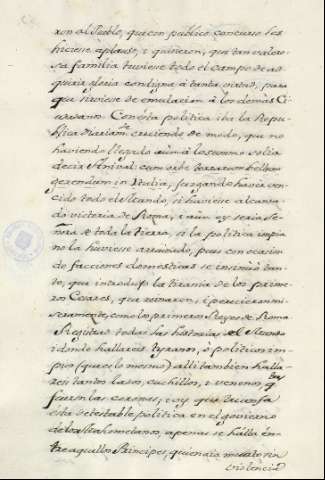 ron al Pueblo, que con publico concurso les
hiciese aplauso, i quisieron, que tan valero-
sa familia tuviese todo el campo de ad-
quirir gloria condigna à tanta virtud, para
que sirviese de emulacion à los demas Ciu-
dadanos. Con esta politica iba la Repu-
blica Diariamte. creciendo de modo, que no
haviendo llegado aun à lo sumo solia
decir Anival: cum orbe terrarum bellum
gerendum in Italia, juzgando havia ven-
cido todo el Mundo, si huviese alcanza-
do victoria de Roma, i aun oy seria Se-
ñora de toda la tierra, si la politica impia
no la huviese arruinado, pues con ocasion
de facciones domesticas se insinuó tan-
to, que introdujo la tirania de los prime-
ros Cesares, que reinaron, i perecieron mi-
seramente, como los primeros Reyes de Roma
Registrad todas las historias del Mundo
i donde hallareis tyranos, ò politicos im-
pios (que es lo mismo) alli tambien halla-
reis tantos lazos, cuchillos, i venenos, qtas
fueron las coronas, i oy que triunfa
esta detestable politica en el govierno
de los Mahometanos, apenas se halla en-
tre aquellos Principes, quien aia muerto sin
violencia